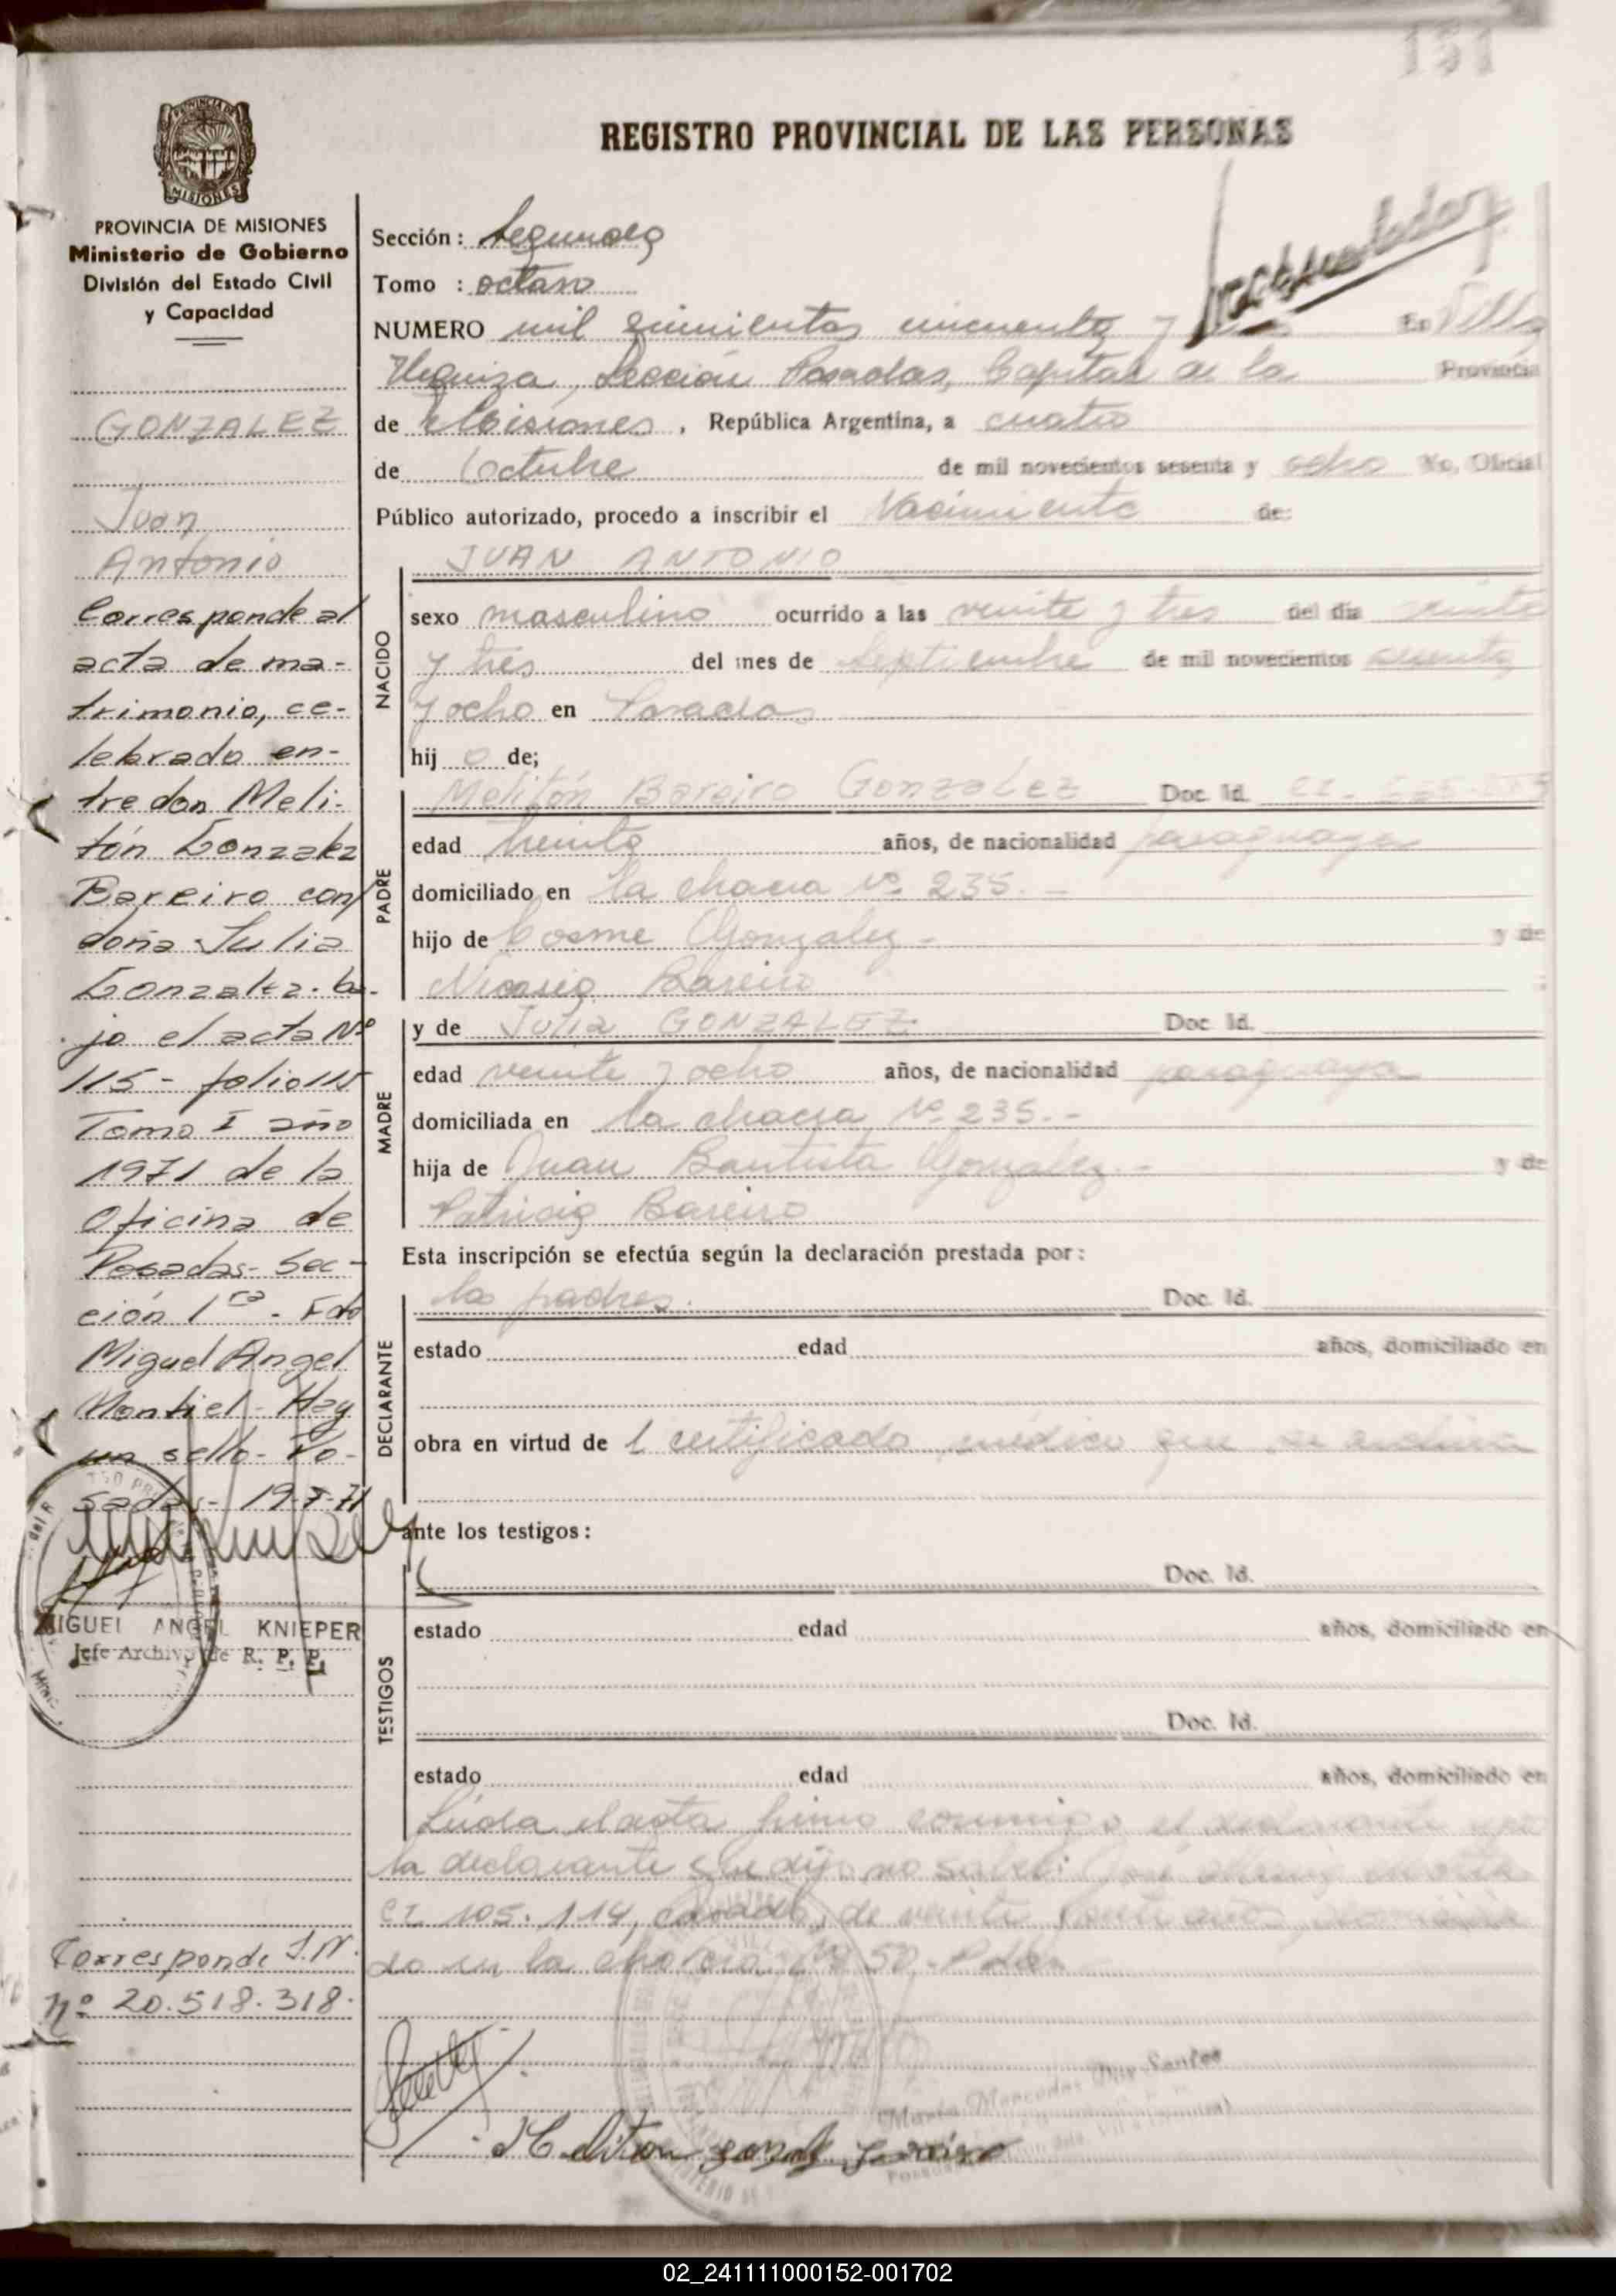 151
REGISTRO PROVINCIAL DE LAS PERSONAS
PROVINCIA DE MISIONES
MISIONES
PROVINCIA DE MISIONES
Ministerio de Gobierno
División del Estado Civil
y Capacidad
GONZALEZ
Juan
Antonio
Corresponde al
acta de ma-
trimonio, ce-
lebrado en-
tre don Meli-
tón Gonzalez
Bareiro con
doña Julia
Gonzalez- ba-
jo el acta Nº
115- folio 115
Tomo I año
1971 de la
Oficina de
Posadas- Sec-
ción 1ra - Fdo
Miguel Angel
Montiel- Hay
un sello- Po-
sadas- 19-7-71
MIGUEL ANGEL KNIEPER
Jefe Archivo de R. P. P.
Corresponde I.N.
nº 20.518.318.
Sección: Segunda
Tomo : octavo
NUMERO mil quinientos cincuenta y En Villa
Urquiza, Sección Posadas, Capital de la Provincia
de Misiones, República Argentina, a cuatro
de Octubre de mil novecientos sesenta y ocho Yo, Oficial
Público autorizado, procedo a inscribir el Nacimiento de:
JUAN ANTONIO
NACIDO
sexo masculino ocurrido a las veinte y tres del día veinte
y tres del mes de Septiembre de mil novecientos sesenta
y ocho en Posadas
hij o de;
PADRE
Melitón Bareiro Gonzalez Doc. Id. CI.
edad treinta años, de nacionalidad paraguaya
domiciliado en la chacra Nº 235.-
hijo de Cosme Gonzalez - y de
Nicasia Bareiro
MADRE
y de Julia GONZALEZ Doc. Id.
edad veinte y ocho años, de nacionalidad paraguaya
domiciliada en la chacra Nº 235.-
hija de Juan Bautista Gonzalez.- y de
Patricia Bareiro
Esta inscripción se efectúa según la declaración prestada por:
DECLARANTE
los padres. Doc. Id.
estado edad años, domiciliado en
obra en virtud de 1 certificado médico que se archiva
ante los testigos:
TESTIGOS
Doc. Id.
estado edad años, domiciliado en
Doc. Id.
estado edad años, domiciliado en
Leída el acta firma conmigo el declarante
la declarante que dijo no saber:
CI. 105.114, casado, de veinte
do en la chacra Nº 50.- Pdas
María Mercedes Dos Santos
Meliton gonzalez bareiro
02_241111000152-001702